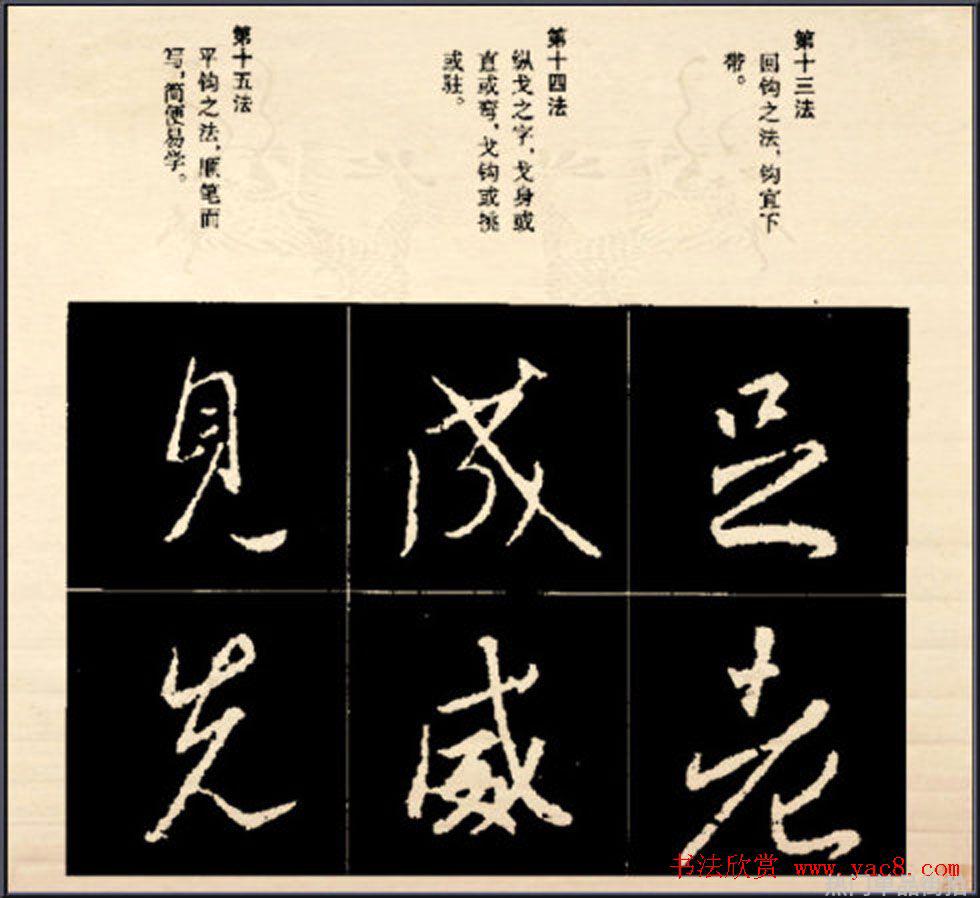 第十三法
回钩之法，钩宜下
带。
第十四法
纵戈之字，戈身或
直或弯，戈钩或挑
或驻。
第十五法
平钩之法，顺笔而
写，简便易学。
足
老
成
威
見
先
书法欣赏 www.yac8.com